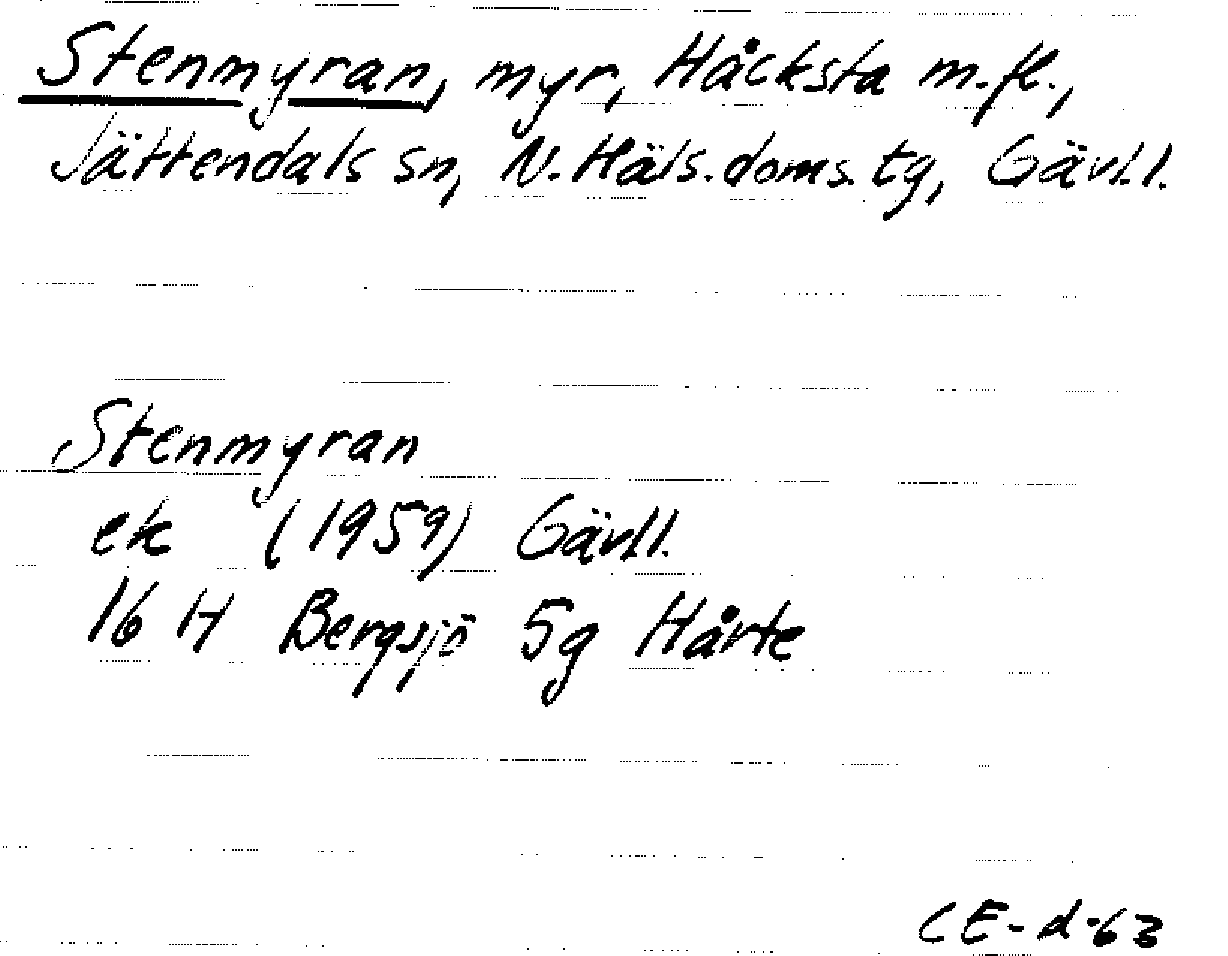 Stenmyran, myr, Håcksta m.fl.,
Jättendals sn, N. Häls. doms. tg, Gävl.l.
Stenmyran
ek (1959) Gävl.l.
16 H Bergsjö 5g Hårte
CE-d-63